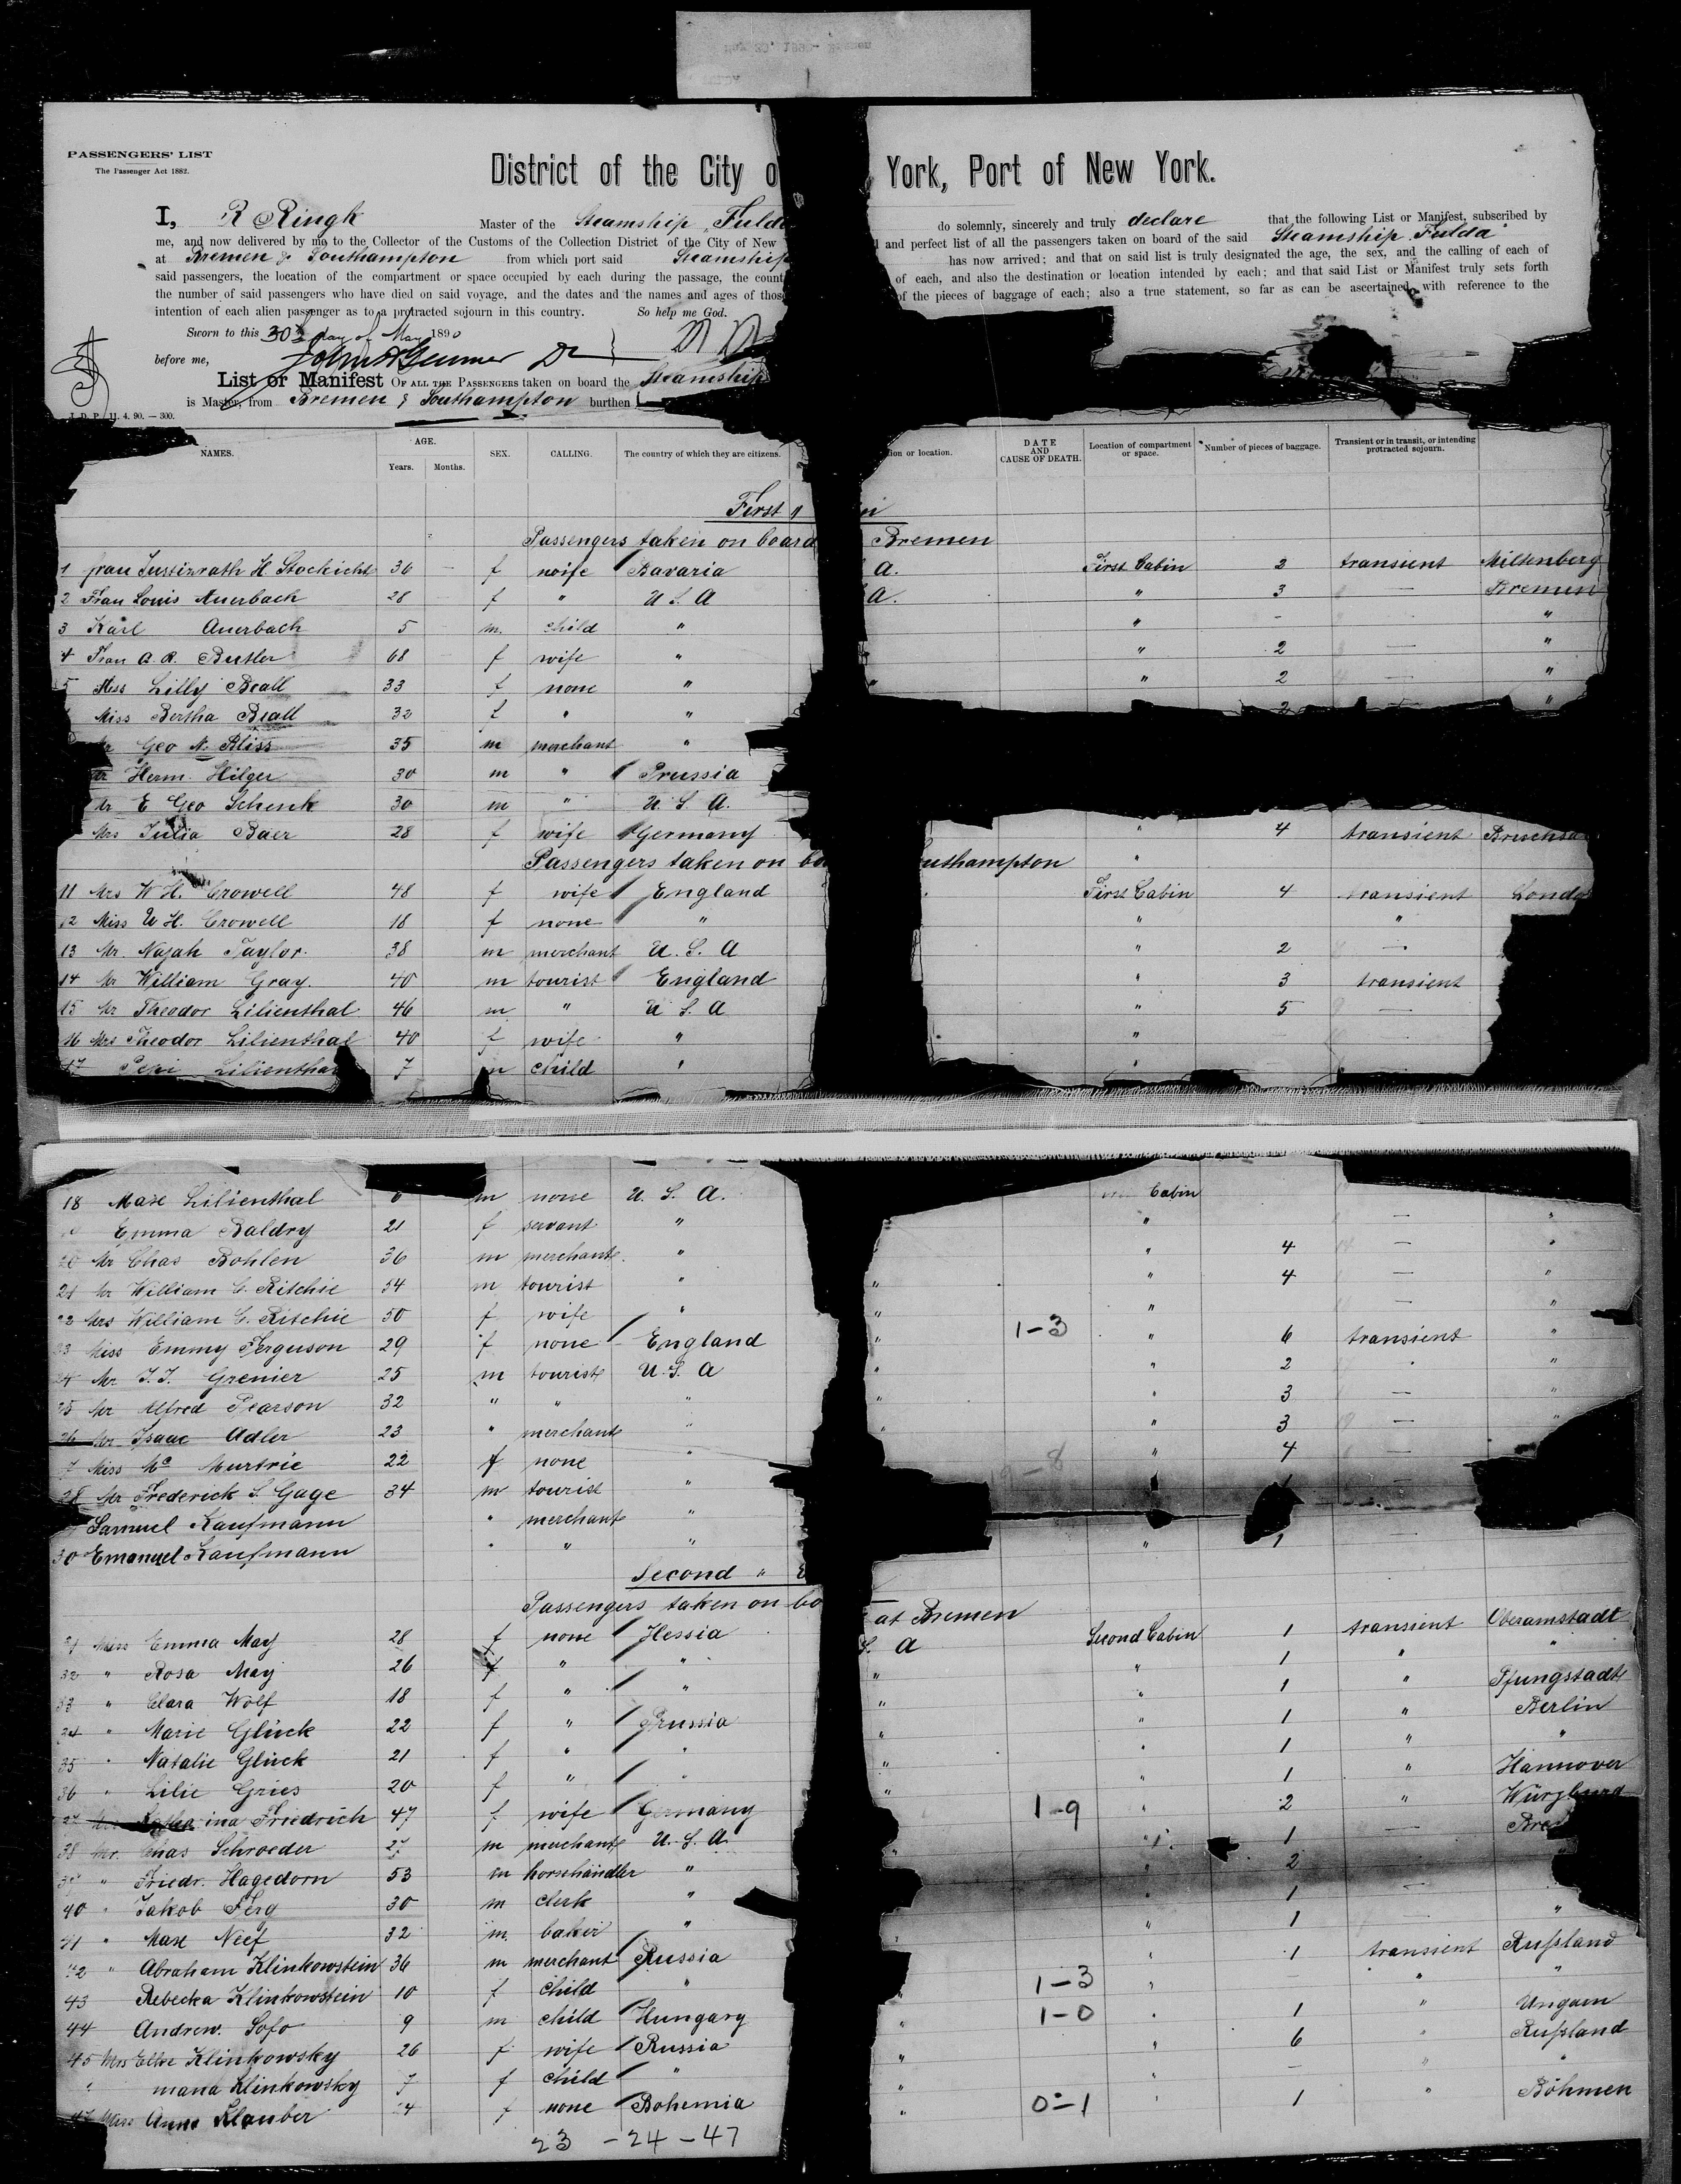 PASSENGERS' LIST
The Passenger Act 1882.
District of the City o York, Port of New York.
I, R Ringk Master of the Steamship "Fulda do solemnly, sincerely and truly declare that the following List or Manifest, subscribed by
me, and now delivered by me to the Collector of the Customs of the Collection District of the City of New and perfect list of all the passengers taken on board of the said Steamship "Fulda"
at Bremen & Southampton from which port said Steamship has now arrived; and that on said list is truly designated the age, the sex, and the calling of each of
said passengers, the location of the compartment or space occupied by each during the passage, the count of each, and also the destination or location intended by each; and that said List or Manifest truly sets forth
the number of said passengers who have died on said voyage, and the dates and the names and ages of those of the pieces of baggage of each; also a true statement, so far as can be ascertained, with reference to the
intention of each alien passenger as to a protracted sojourn in this country. So help me God.
Sworn to this 30th day of May 1890
before me,
List or Manifest OF ALL THE PASSENGERS taken on board the Steamship
is Master, from Bremen & Southampton burthen
J. D. P. 11. 4. 90. — 300.
NAMES. AGE. Years. Months. SEX. CALLING. The country of which they are citizens. ion or location. DATE AND CAUSE OF DEATH. Location of compartment or space. Number of pieces of baggage. Transient or in transit, or intending protracted sojourn.
First " in
Passengers taken on board Bremen
1 Frau Justizrath H. Stockicht 36 f wife Bavaria A. First Cabin 2 transient Miltenberg
2 Frau Louis Auerbach 28 f " U S A A. " 3 — Bremen
3 Karl Auerbach 5 m. child " " - "
4 Frau A. R. Butler 68 f wife " " 2 — "
5 Miss Lilly Beall 33 f none " " " 2 — "
Miss Bertha Beall 32 f " " 2 "
Mr Geo N. Bliss 35 m merchant "
Mr Herm. Hilger 30 m " Prussia
Mr E Geo Schenk 30 m " U. S. A.
Mrs Julia Baer 28 f wife Germany " 4 transient Bruchsa
Passengers taken on bo outhampton "
11 Mrs W H. Crowell 48 f wife England First Cabin 4 transient Londo
12 Miss W H. Crowell 18 f none " " "
13 Mr. Najah Taylor. 38 m merchant U. S. A " 2 —
14 Mr William Gray. 40 m tourist England " 3 transient
15 Mr Theodor Lilienthal 46 m " U S. A " 5 —
16 Mrs Theodor Lilienthal 40 f wife " "
17 Pepi Lilienthal 7 m child " "
18 Max Lilienthal 6 m none U. S. A. Cabin
Emma Baldry 21 f servant " " — "
20 Mr Chas Bohlen 36 m merchant " " 4 — "
21 Mr William C. Ritchie 54 m tourist " " " 4 — "
22 Mrs William C. Ritchie 50 f wife " " " — "
23 Miss Emmy Ferguson 29 f none England " 1-3 " 6 transient "
24 Mr J. J. Grenier 25 m tourist U. S. A " " 2 "
25 Mr Alfred Pearson 32 " " " " " 3 — "
26 Mr Isaac Adler 23 " merchant " " " 3 — "
7 Miss Mc Murtrie 22 f none " " 4 —
28 Mr Frederick S. Gage 34 m tourist "
Samuel Kaufmann " merchant "
30 Emanuel Kaufmann " " " " 1 —
Second "
Passengers taken on bo at Bremen
31 Miss Emma May 28 f none Hessia S. A Second Cabin 1 transient Oberamstadt
32 " Rosa May 26 f " " " " 1 " "
33 " Clara Wolf 18 f " " " " 1 " Pfungstadt
34 " Marie Glück 22 f " Prussia " " 1 " Berlin
35 " Natalie Glück 21 f " " " " 1 " "
36 " Lilie Gries 20 f " " " " 1 " Hannover
37 Katharina Friedrich 47 f wife Germany 1-9 " 2 " Würzburg
38 Mr. Chas Schroeder 27 m merchant U. S. A. " " 1 — Bre
39 " Friedr. Hagedorn 53 m horsehändler " " 2
40 " Jakob Ferg 30 m clerk " " 1 —
41 " Max Neef 32 m. baker " " 1 "
42 " Abraham Klinkowstein 36 m merchant Russia " 1 transient Rußland
43 Rebecka Klinkowstein 10 f child " 1-3 " — " "
44 Andrew. Sofo 9 m child Hungary " 1-0 " 1 " Ungarn
45 Mrs Elke Klinkowsky 26 f wife Russia " " 6 " Rußland
" mana Klinkowsky 7 f child " " " — " "
47 Miss Anna Klauber 24 f none Bohemia " 0-1 " 1 " Böhmen
23 - 24 - 47